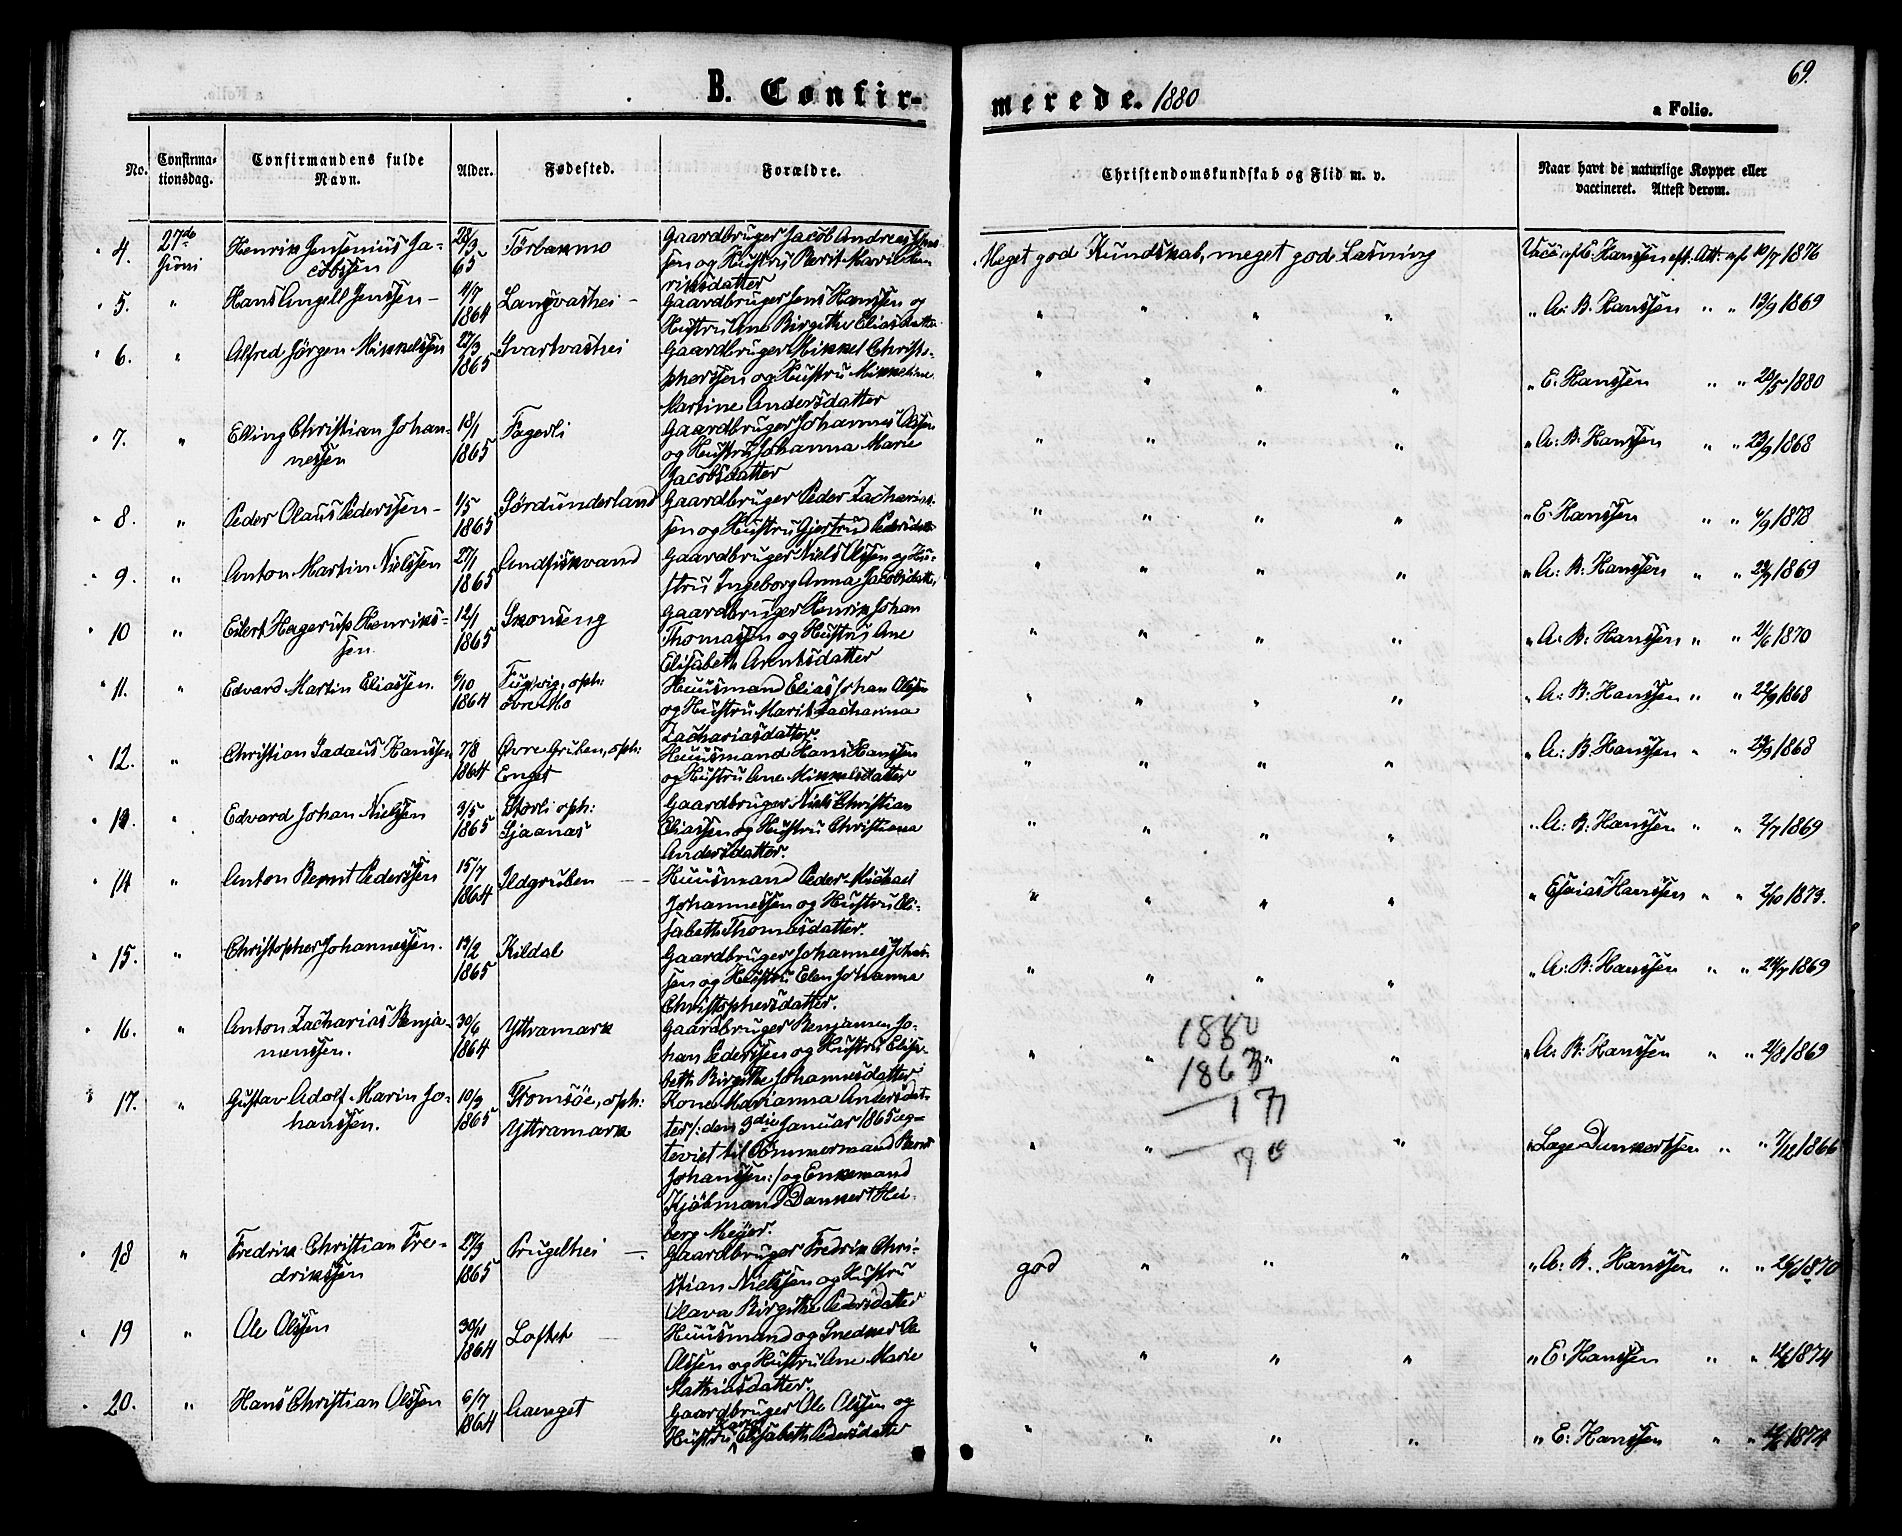 69.
B. Confirmerede. 1880
a Folio.
No. Confirmationsdag. Confirmandens fulde Navn. Alder. Fødested. Forældre. Christendomskundskab og Flid m. v. Naar havt de naturlige Kopper eller vaccineret. Attest derom.
4. 27de Juni Henrik Jensenius Ja- 28/3 Tørbakmo Gaardbruger Jacob Andreas
cobsen 65 sen og Hustru Berit Marie Hen-
riksdatter
Meget god Kundskab, meget god Læsning Vacc. af E. Hanssen eft. Att. af 10/7 1876
5. " Hans Angell Jenssen - 4/7 Langvashei - Gaardbruger Jens Hanssen og
1864 Hustru Ane Birgitte Eliasdatter
" " " " " A. B. Hanssen " " 13/9 1869
6. " Alfred Jørgen Mikkelssen 22/3 Svartvashei Gaardbruger Mikkel Christo-
1865 phersen og Hustru Mikkeline
Martine Andersdatter
" " " " " E. Hanssen " " 28/5 1880
7. " Elling Christian Johan- 18/1 Fagerli Gaardbruger Johannes Olssen
nessen 1865 og Hustru Johanna Marie
Jacobsdatter
" " " " " A. B. Hanssen " " 23/9 1868
8. " Peder Olaus Pederssen - 1/5 Sørdunderland Gaardbruger Peder Zacharias-
1865 sen og Hustru Gjertrud Pedersdatter
" " " " " E. Hanssen " " 4/9 1873
9. " Anton Martin Nielssen 27/1 Andfiskvand Gaardbruger Niels Olssen og Hu-
1865 stru Ingeborg Anna Jacobsdatter
" " " " " A. B. Hanssen " " 1869
10 " Eilert Hagerup Henriks- 12/1 Skonseng Gaardbruger Henrik Johan
sen. 1865 Thomassen og Hustru Ane
Elisabeth Arntsdatter
" " " " " A. B. Hanssen " " 21/6 1870
11. " Edvard Martin Eliassen. 6/10 oph: Huusmand Elias Johan Olssen
1864 øvre Mo og Hustru Marit Zacharina
Zachariasdatter.
" " " " " A. B. Hanssen " " 22/9 1868
12. " Christian Tadæus Hanssen 7/8 Øvre Gruben, oph: Huusmand Hans Hanssen
1864 Enget og Hustru Ane Mikkelsdatter
" " " " " A. B. Hanssen " " 23/9 1868
13. " Edvard Johan Nielssen 3/5 Storli oph: Gaardbruger Niels Christian
1865 Sjaanas Eliassen og Hustru Christiana
Andersdatter.
" " " " " A. B. Hanssen " " 2/7 1869
14 " Anton Bernt Pederssen 15/7 Ildgruben - Huusmand Peder Michael
1864 Johannessen og Hustru Eli-
sabeth Thomasdatter.
" " " " " Esaias Hanssen " " 2/10 1873.
15. " Christopher Johannessen. 13/2 Kildal Gaardbruger Johannes Johan
1865 sen og Hustru Elen Johanna
Christophersdatter.
" " " " " A. B. Hanssen " " 24/7 1869
16. " Anton Zacharias Benja- 30/6 Yttramark Gaardbruger Benjamen Jo-
menssen. 1864 han Pederssen og Hustru Elisa-
beth Birgitte Johannesdatter
" " " " " A. B. Hanssen " " 2/8 1869
1880
1863
17
17. " Gustav Adolf Marin Jo- 10/9 Tromsøe, oph: Kone Marianna Andersdat-
hanssen. 1865 Yttramark ter /: den 3die Januar 1865 æg-
teviet til Tømmermand Bernt
Johanssen :/ og Enkemand
Kjøbmand Dankert Hei-
berg Meyer.
" " " " Lage Dunkertsen " " 7/12 1866
18 " Fredrik Christian Fre- 27/3 Prugelhei - Gaardbruger Fredrik Chri-
drikssen 1865 stian Nielssen og Hustru
Olava Birgitte Pedersdatter
god " " " " A. B. Hanssen " " 26/6 1870
19 " Ole Olssen 30/11 Loftet Huusmand og Snedker Ole
1864 Olssen og Hustru Ane Marie
Mathiasdatter.
" " " " " E. Hanssen " " 1874
20. " Hans Christian Olssen 6/7 Aaenget Gaardbruger Ole Olssen og
1864 Hustru Karen Elisabeth Pedersdatter
" " " " " E. Hanssen " " 1874